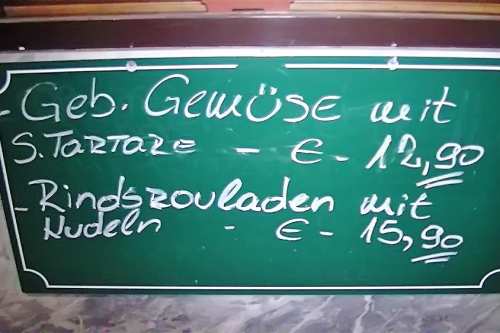 - Geb. Gemüse mit
S. Tartare - € - 12,90
- Rindsrouladen mit
Nudeln - € - 15,90